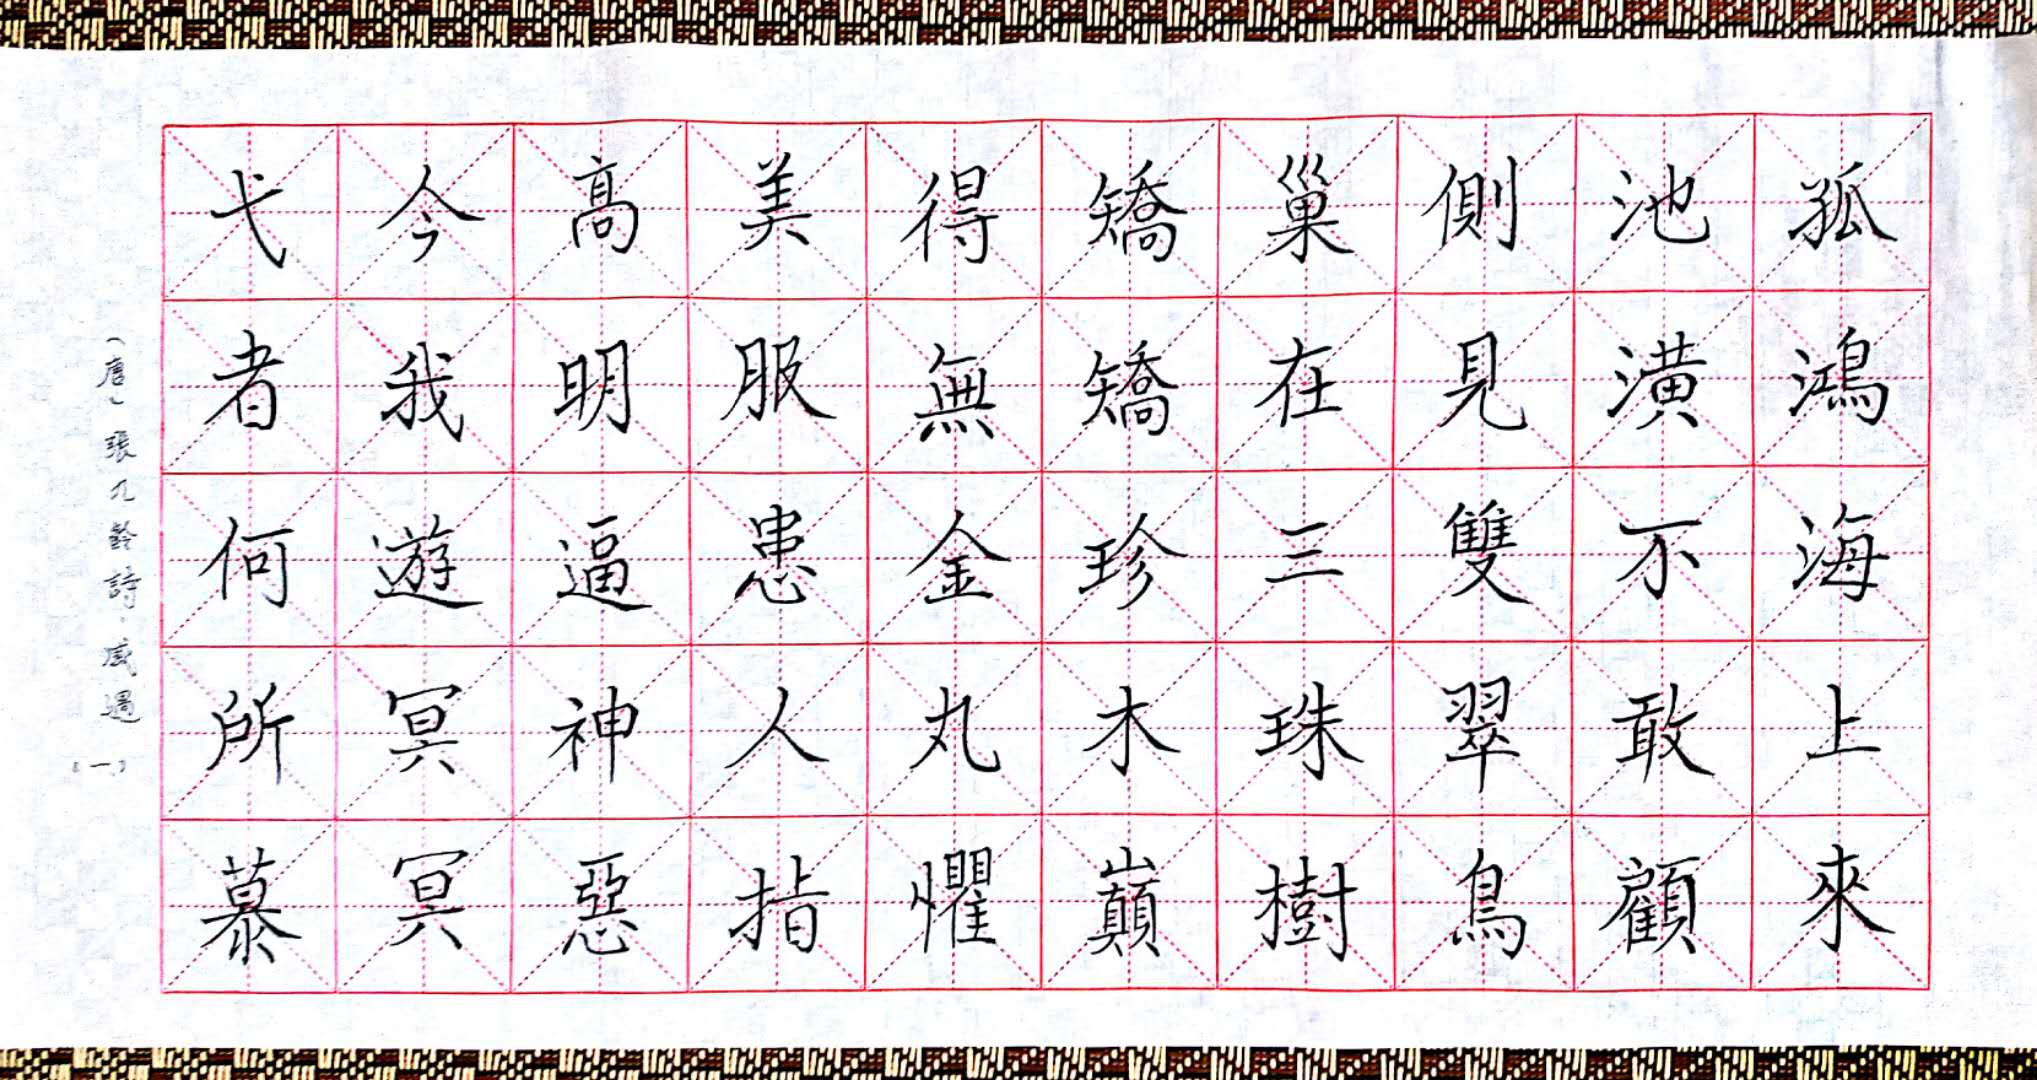 孤鴻海上來
池潢不敢顧
側見雙翠鳥
巢在三珠樹
矯矯珍木巔
得無金丸懼
美服患人指
高明逼神惡
今我遊冥冥
弋者何所慕
(唐)張九齡詩·感遇(一)